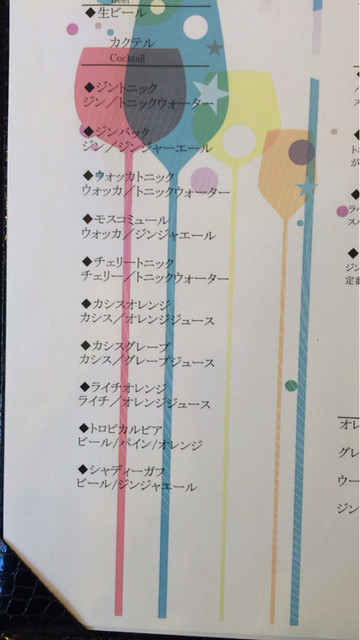 Beer
◆生ビール
カクテル
Cocktail
◆ジントニック
ジン／トニックウォーター
◆ジンバック
ジン／ジンジャーエール
◆ウォッカトニック
ウォッカ／トニックウォーター
◆モスコミュール
ウォッカ／ジンジャエール
◆チェリートニック
チェリー／トニックウォーター
◆カシスオレンジ
カシス／オレンジジュース
◆カシスグレープ
カシス／グレープジュース
◆ライチオレンジ
ライチ／オレンジジュース
◆トロピカルビア
ビール/パイン/オレンジ
◆シャディーガフ
ビール/ジンジャエール
ジン
定番
オレ
グレ
ウー
ジン